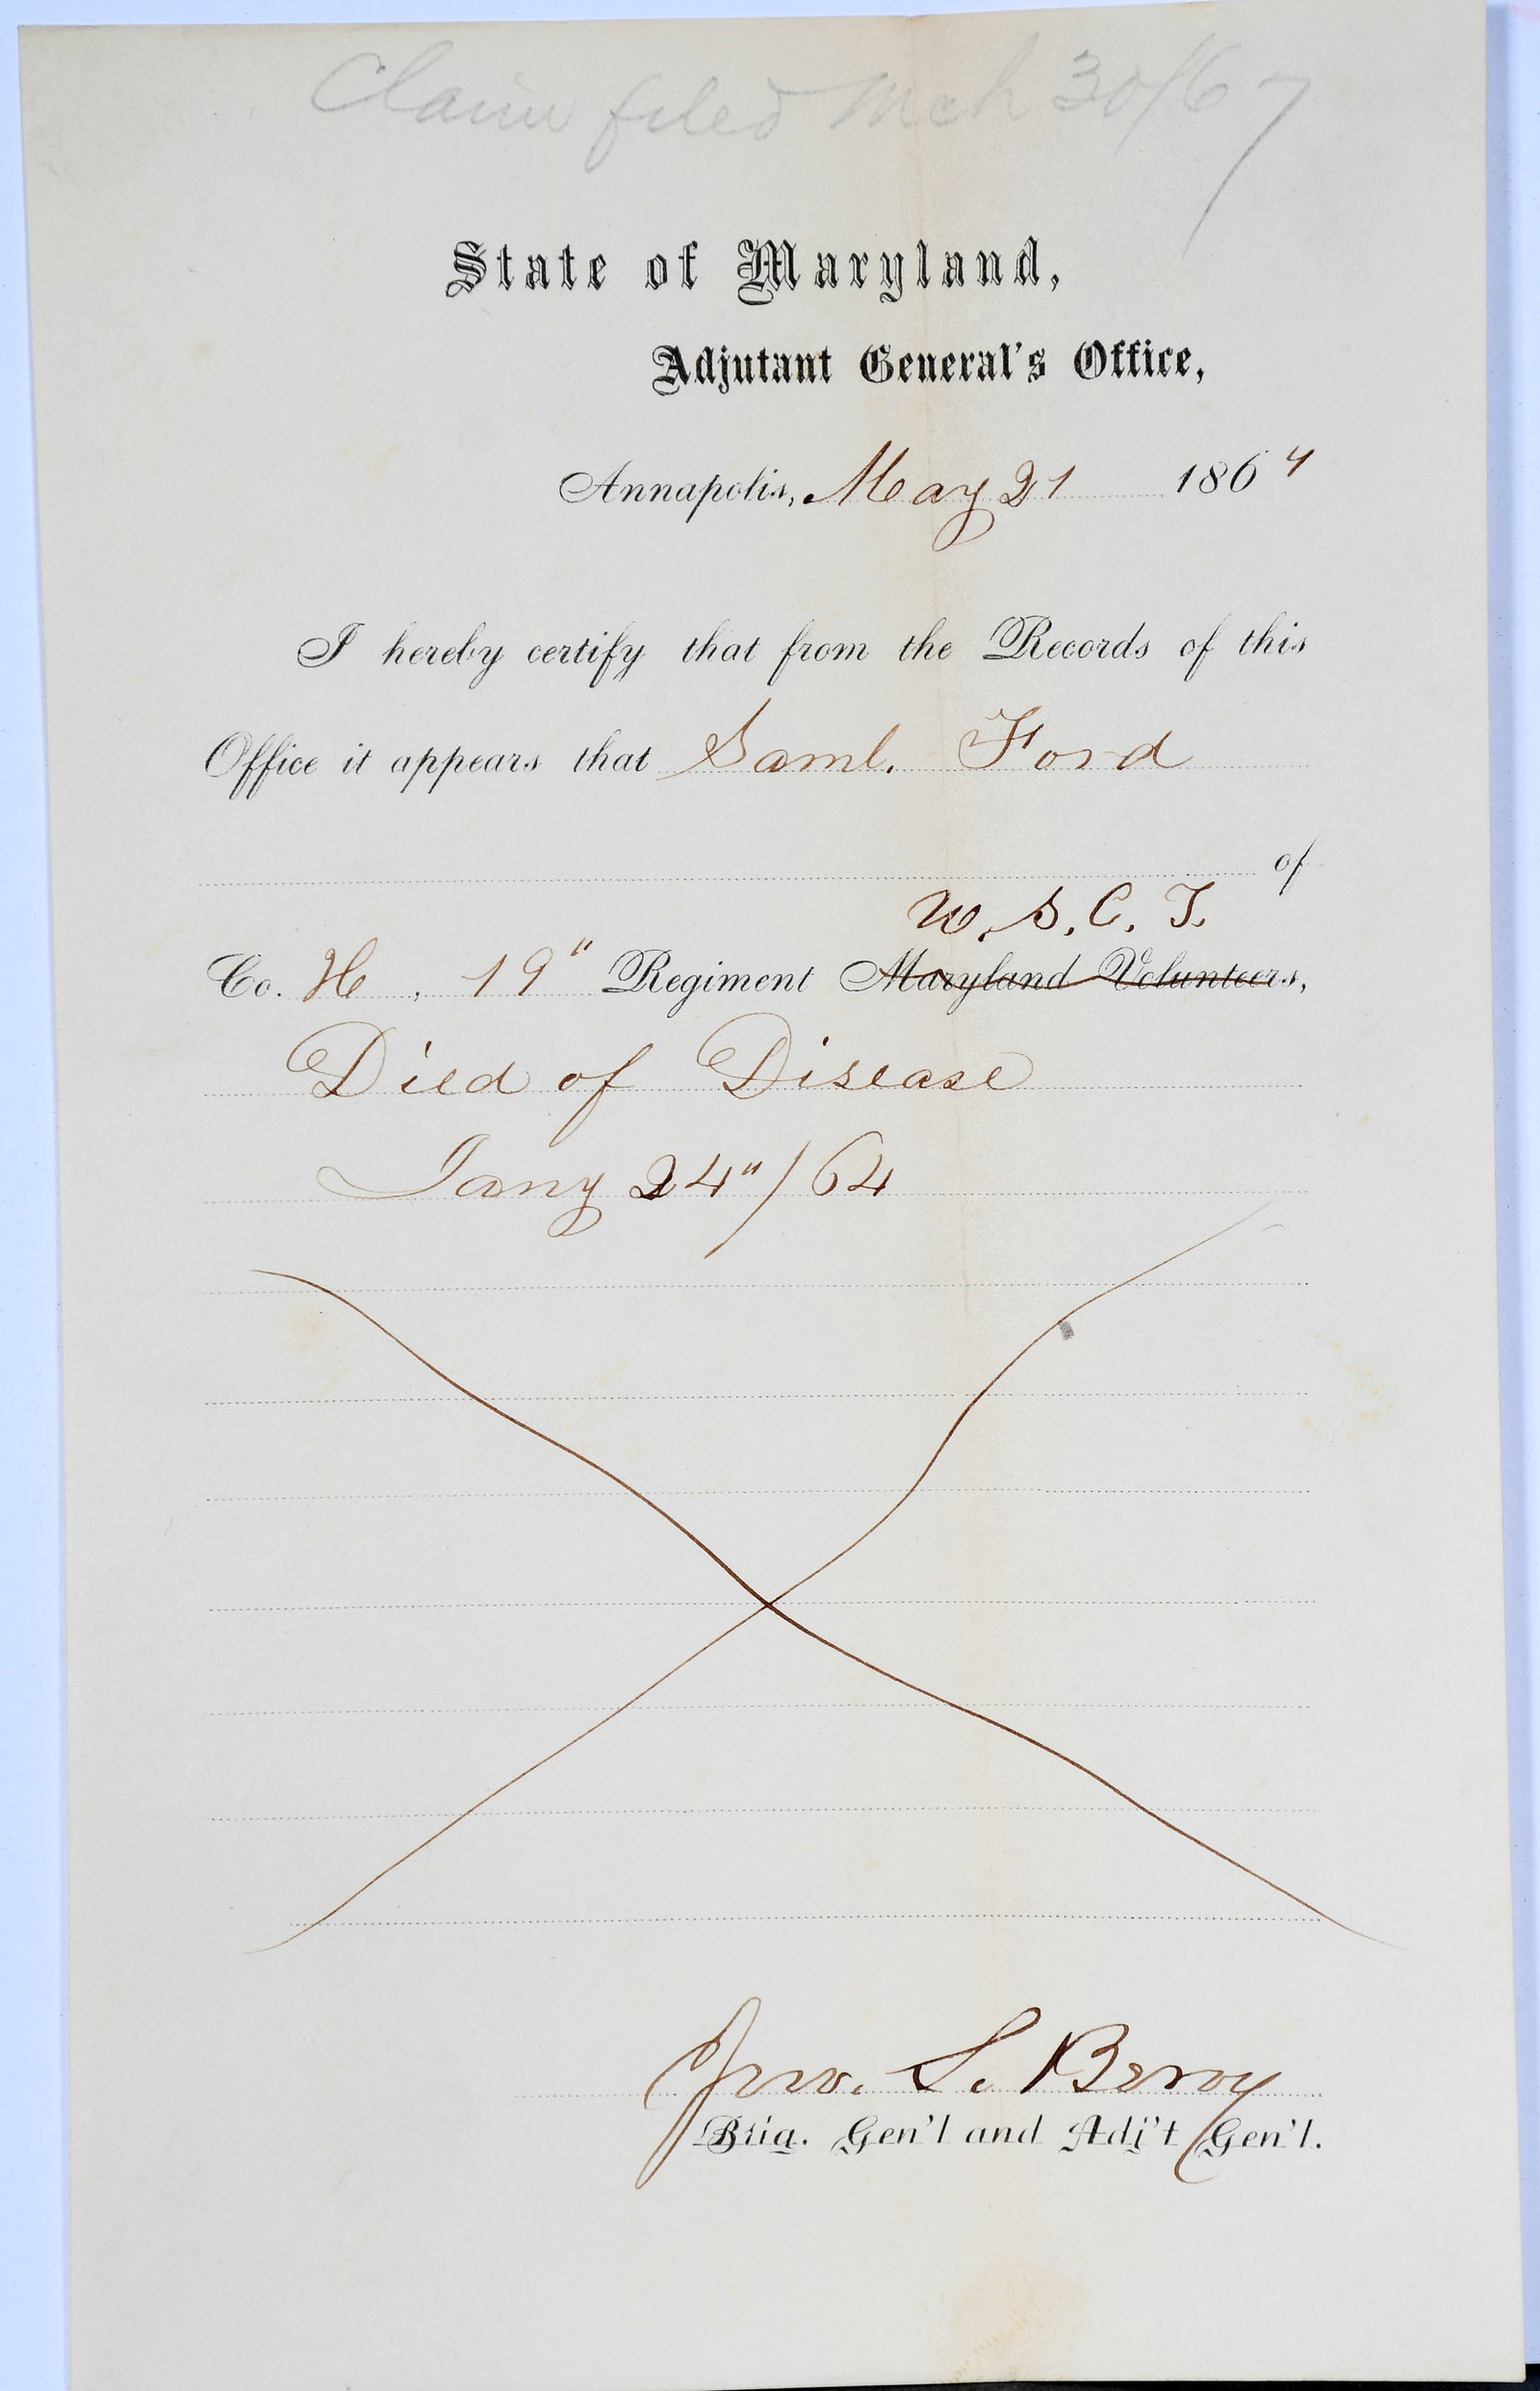 Claim filed Mch 30/67
State of Maryland,
Adjutant General's Office,
Annapolis, May 21 1864
I hereby certify that from the Records of this
Office it appears that Saml. Ford
of
U. S. C. T.
Co. H, 19" Regiment Maryland Volunteers,
Died of Disease
Jany 24"/64
Jno. S. Berry
Brig. Gen'l and Adj't Gen'l.